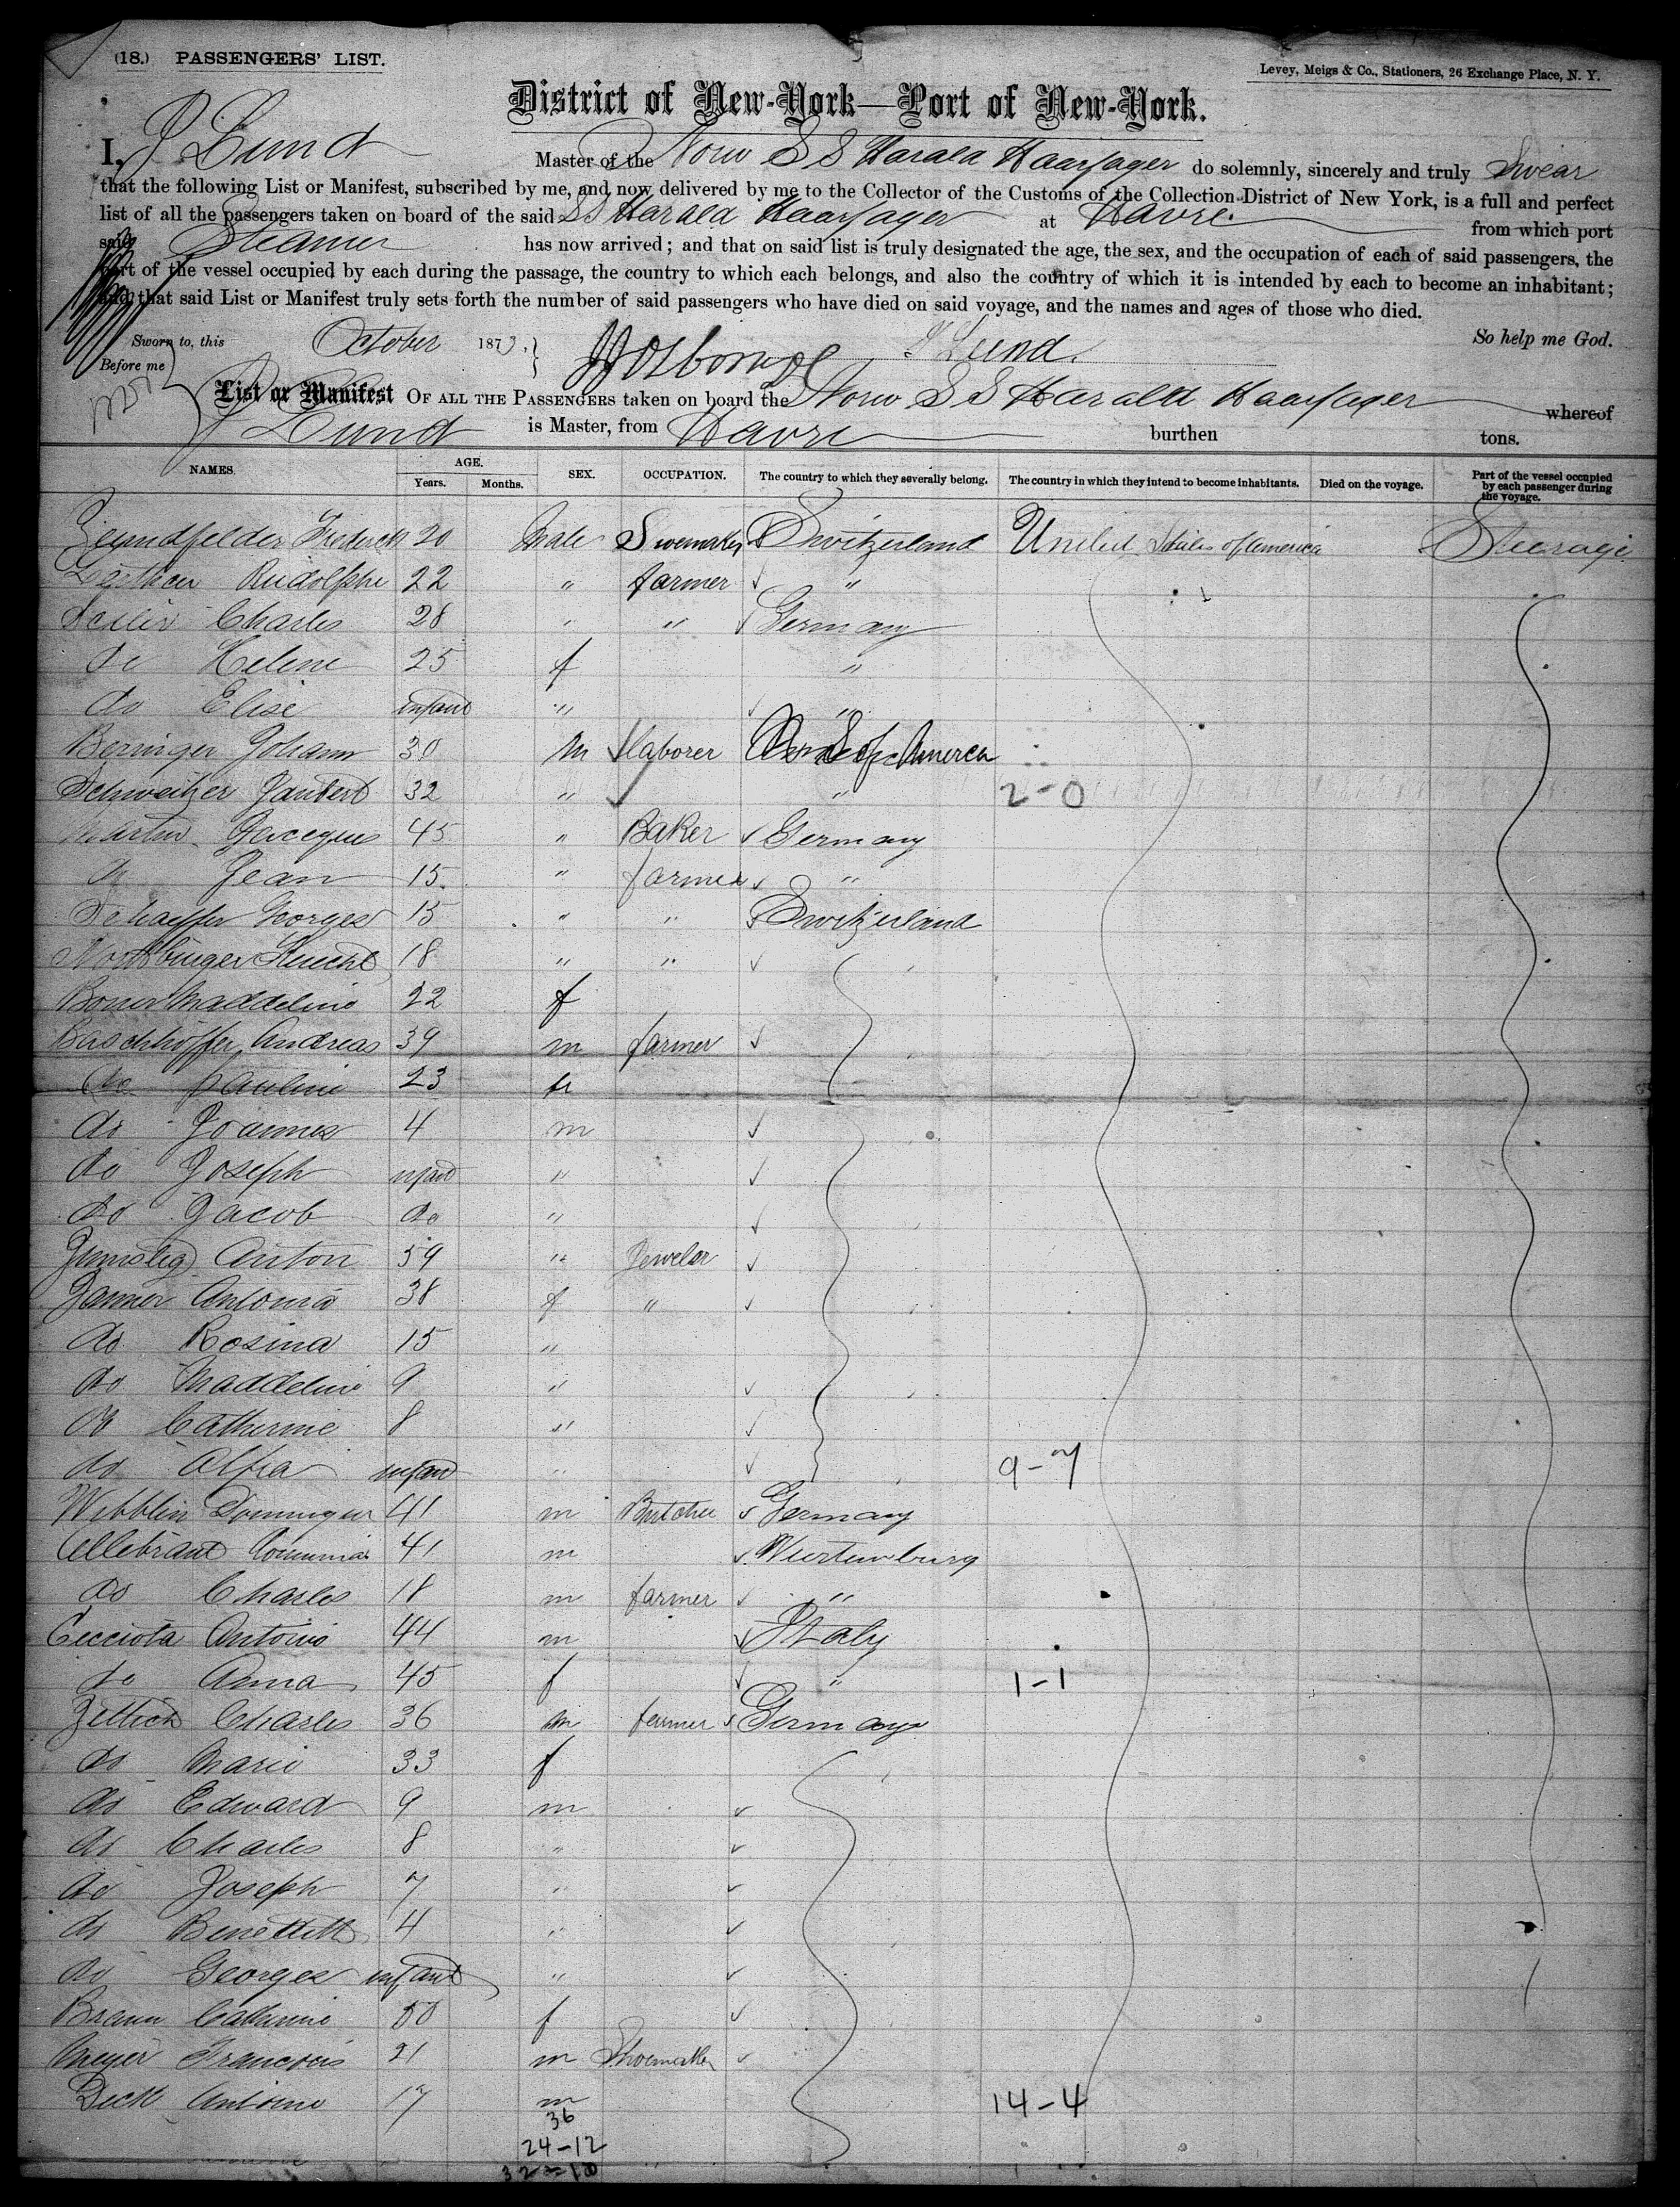 (18.) PASSENGERS' LIST.
Levey, Meigs & Co., Stationers, 26 Exchange Place, N. Y.
District of New-York—Port of New-York.
I, J Lund Master of the Norw S S Harald Haarfager do solemnly, sincerely and truly swear
that the following List or Manifest, subscribed by me, and now delivered by me to the Collector of the Customs of the Collection District of New York, is a full and perfect
list of all the passengers taken on board of the said SS Harald Haarfager at Havre from which port
said Steamer has now arrived; and that on said list is truly designated the age, the sex, and the occupation of each of said passengers, the
part of the vessel occupied by each during the passage, the country to which each belongs, and also the country of which it is intended by each to become an inhabitant;
and that said List or Manifest truly sets forth the number of said passengers who have died on said voyage, and the names and ages of those who died.
Sworn to, this October 1873, J Lund So help me God.
Before me
List or Manifest OF ALL THE PASSENGERS taken on board the Norw S S Harald Haarfager whereof
J Lund is Master, from Havre burthen tons.
NAMES. AGE. Years. Months. SEX. OCCUPATION. The country to which they severally belong. The country in which they intend to become inhabitants. Died on the voyage. Part of the vessel occupied by each passenger during the voyage.
Frederick 20 Male Switzerland United States of America Steerage
Rudolphe 22 " farmer "
Charles 28 " " Germany
do Helene 25 f "
do Elise infant " "
Beringer Johann 30 m laborer of America
Schweitzer 32 " " 2-0
Martin 45 " Baker Germany
do Jean 15 " farmer "
Schaeffer Georges 15 " " Switzerland
18 " "
Maddeline 22 f
Andreas 39 m farmer
do Pauline 23 f
do 4 m
do Joseph infant "
do Jacob do "
Anton 59 " Jeweler
Antonia 38 f "
do Rosina 15 "
do Maddeline 9 "
do Catherine 8 "
do infant " 9-7
41 m Butcher Germany
41 m Wurtemburg
do Charles 18 m farmer "
Cecciota Antonio 44 m Italy
do Anna 45 f " 1-1
Charles 36 m farmer Germany
do Marie 33 f
do Edward 9 m
do Charles 8 "
do Joseph 7 "
do 4 "
do Georges infant "
Braun Catherine 50 f
Meyer Francois 21 m Shoemaker
17 m 14-4
36
24-12